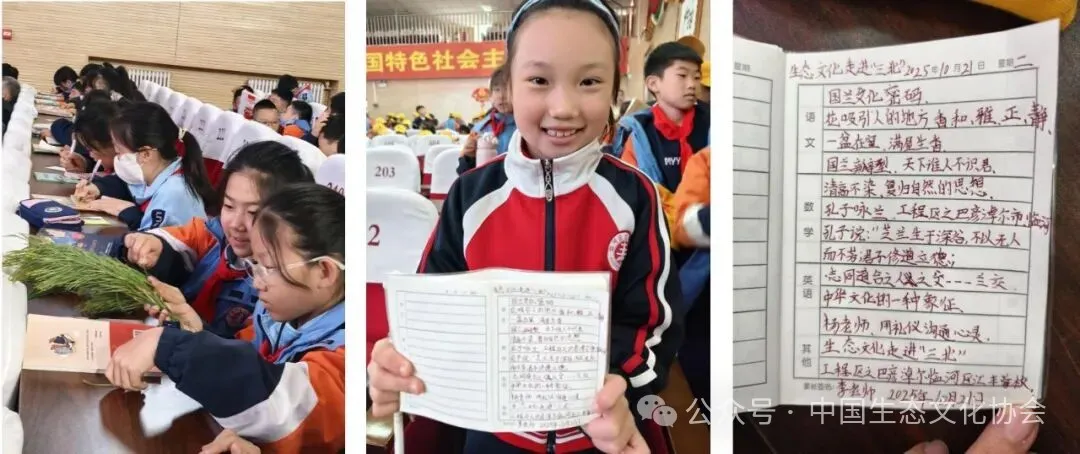 国特色社会主
203
2
5
生态文化走进"三北" 2025年10月21日 星期二
星期
国兰文化密码
热吸引人的地方香和、雅、正、静.
语文
一盆在望，满屋生香
国兰
天下谁人不识君
清高不染，复归自然的思想
数学
孔子咏兰，工程区之巴彦淖尔市临河
孔子说："芝兰生于深谷，不以无人
而不芳
志同道合之
之交……兰交
英语
中华文化的一种象征.
杨老师，用礼仪沟通心灵
其他
生态文化走进"三北"
工程区之巴彦淖尔临河区
家长签名:
李老师 2025年10月21日
公众号·中国生态文化协会